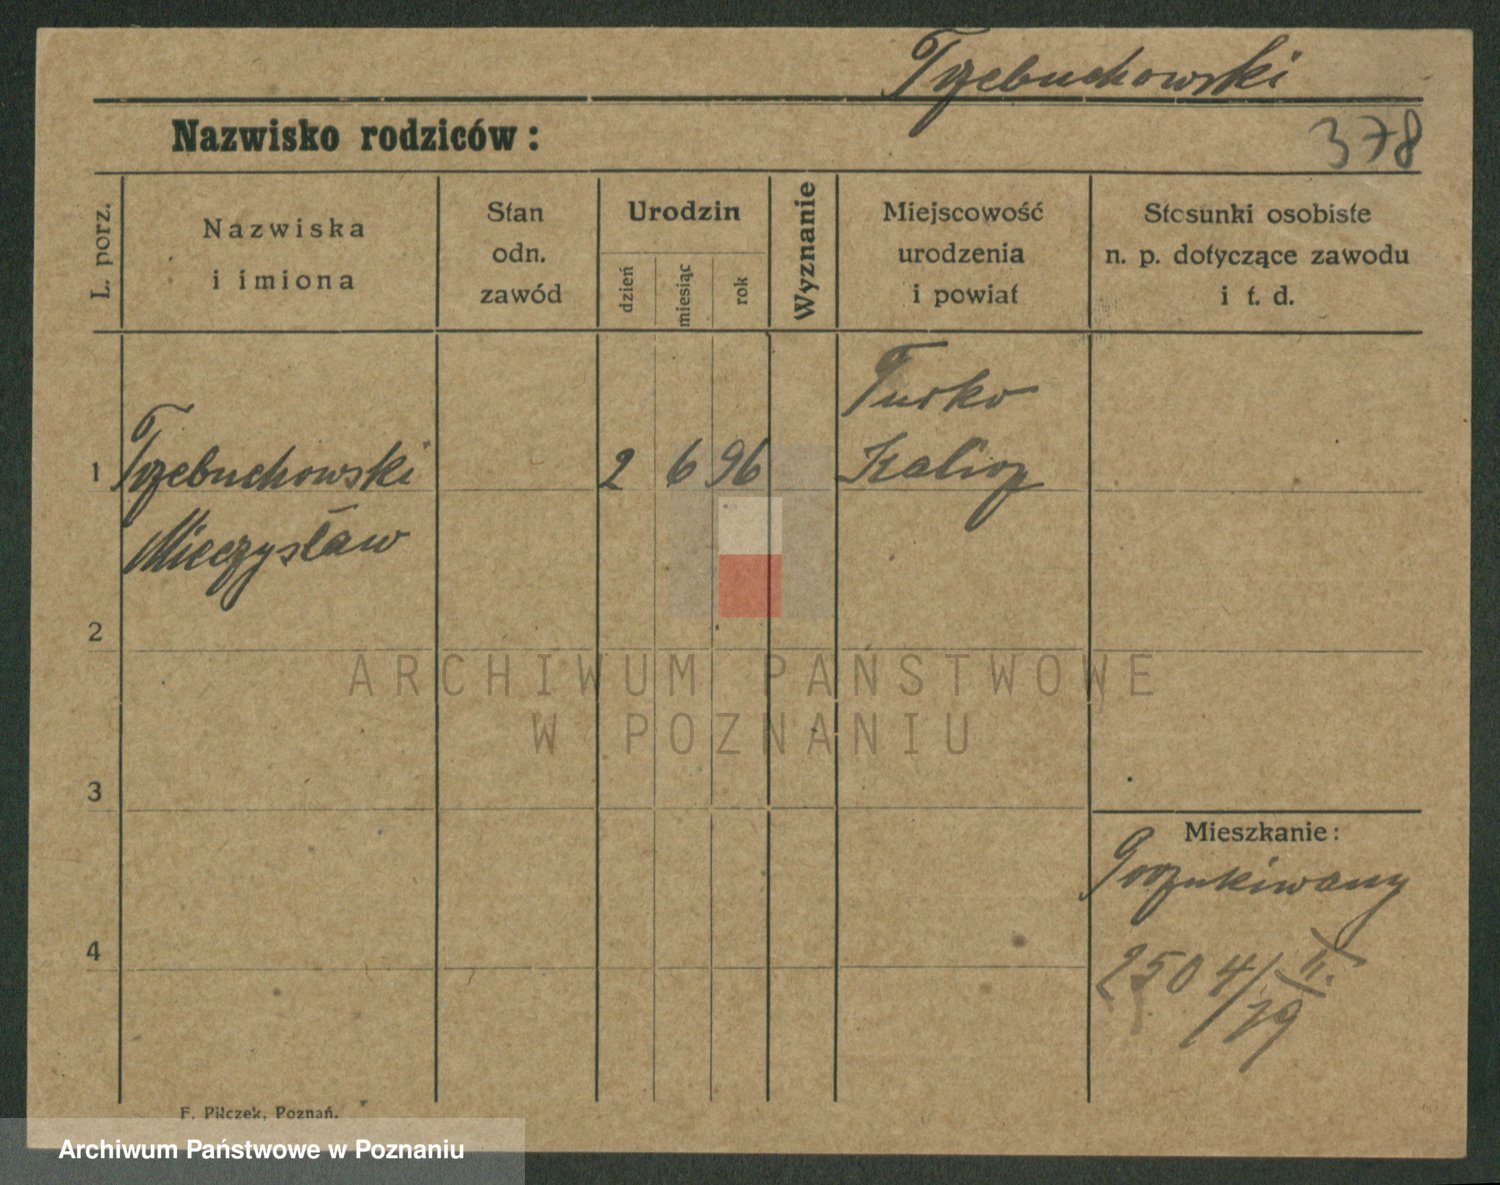 Trzebuchowski
Nazwisko rodziców:
378
L. porz.
Nazwiska
i imiona
Stan
odn.
zawód
Urodzin
dzień
miesiąc
rok
Wyznanie
Miejscowość
urodzenia
i powiat
Stosunki osobiste
n. p. dotyczące zawodu
i t. d.
1
Trzebuchowski
Mieczysław
2 6 96
Turko
Kalisz
2
ARCHIWUM PAŃSTWOWE
W POZNANIU
3
4
Mieszkanie:
Poszukiwany
2504/II.
29
F. Pilczek, Poznań.
Archiwum Państwowe w Poznaniu